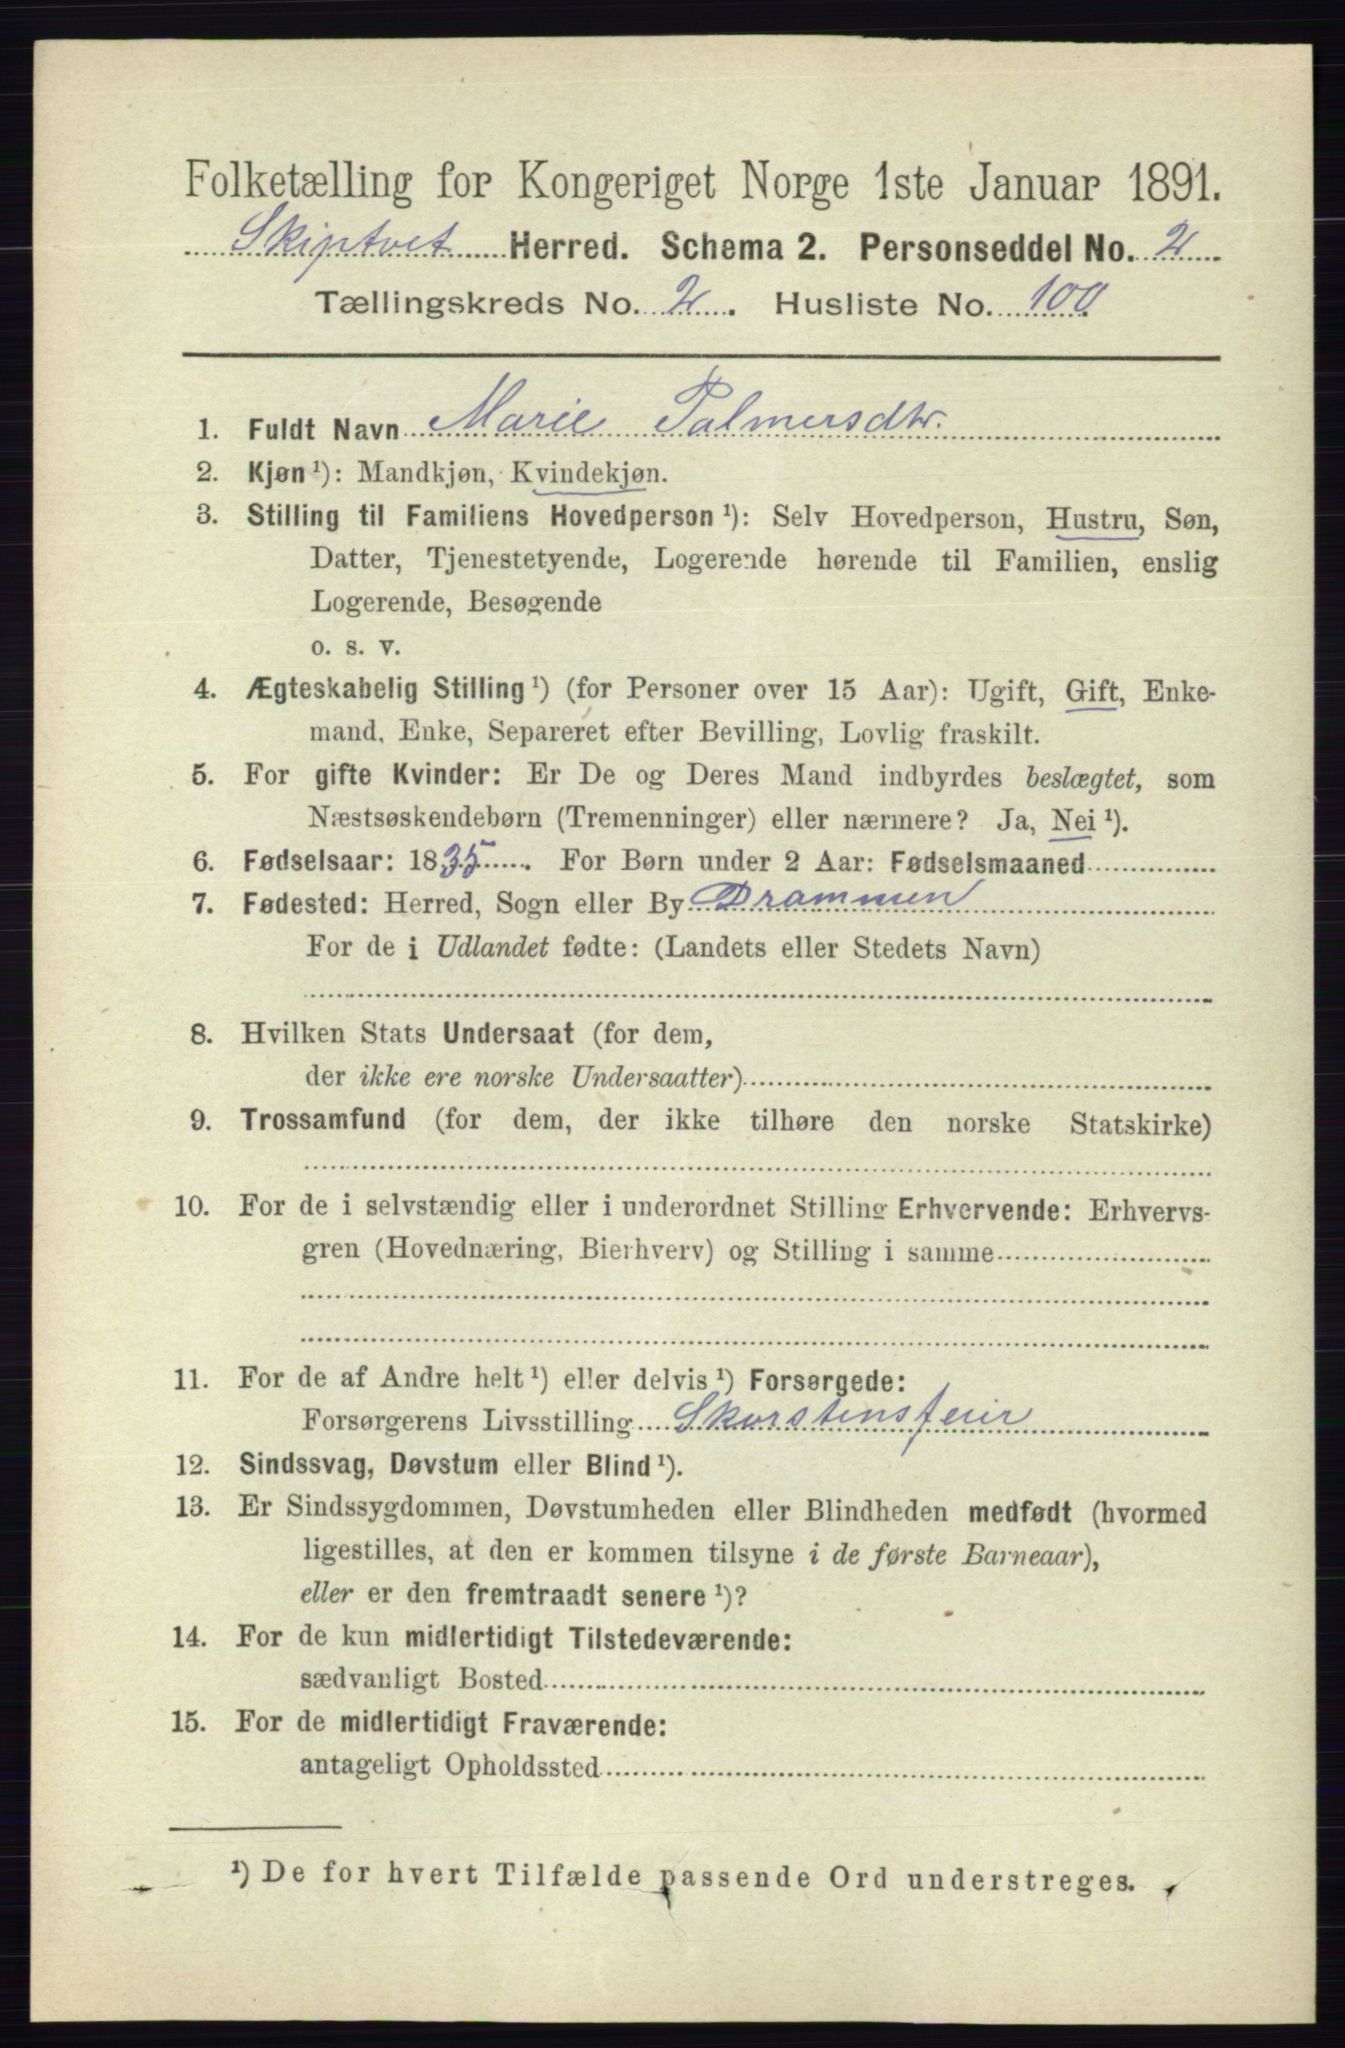 Folketælling for Kongeriget Norge 1ste Januar 1891.
Skiptvet Herred. Schema 2. Personseddel No. 2
Tællingskreds No. 2. Husliste No. 100
1. Fuldt Navn Marie Palmersdtr.
2. Kjøn¹): Mandkjøn, Kvindekjøn.
3. Stilling til Familiens Hovedperson¹): Selv Hovedperson, Hustru, Søn,
Datter, Tjenestetyende, Logerende hørende til Familien, enslig
Logerende, Besøgende
o. s. v.
4. Ægteskabelig Stilling¹) (for Personer over 15 Aar): Ugift, Gift, Enke-
mand, Enke, Separeret efter Bevilling, Lovlig fraskilt.
5. For gifte Kvinder: Er De og Deres Mand indbyrdes beslægtet, som
Næstsøskendebørn (Tremenninger) eller nærmere? Ja, Nei¹).
6. Fødselsaar: 1835. For Børn under 2 Aar: Fødselsmaaned
7. Fødested: Herred, Sogn eller By Drammen
For de i Udlandet fødte: (Landets eller Stedets Navn)
8. Hvilken Stats Undersaat (for dem,
der ikke ere norske Undersaatter)
9. Trossamfund (for dem, der ikke tilhøre den norske Statskirke)
10. For de i selvstændig eller i underordnet Stilling Erhvervende: Erhvervs-
gren (Hovednæring, Bierhverv) og Stilling i samme
11. For de af Andre helt¹) eller delvis¹) Forsørgede:
Forsørgerens Livsstilling Skorstensfeier
12. Sindssvag, Døvstum eller Blind¹).
13. Er Sindssygdommen, Døvstumheden eller Blindheden medfødt (hvormed
ligestilles, at den er kommen tilsyne i de første Barneaar),
eller er den fremtraadt senere¹)?
14. For de kun midlertidigt Tilstedeværende:
sædvanligt Bosted
15. For de midlertidigt Fraværende:
antageligt Opholdssted
¹) De for hvert Tilfælde passende Ord understreges.